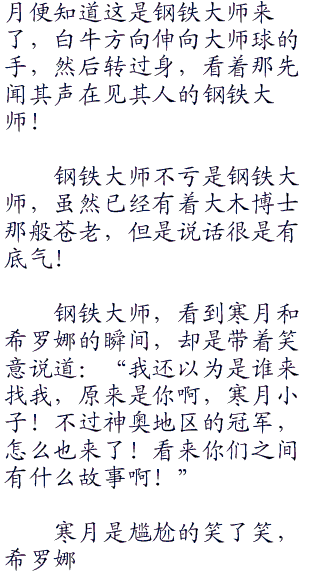 月便知道这是钢铁大师来
了，白牛方向伸向大师球的
手，然后转过身，看着那先
闻其声在见其人的钢铁大
师！
钢铁大师不亏是钢铁大
师，虽然已经有着大木博士
那般苍老，但是说话很是有
底气！
钢铁大师，看到寒月和
希罗娜的瞬间，却是带着笑
意说道：“我还以为是谁来
找我，原来是你啊，寒月小
子！不过神奥地区的冠军，
怎么也来了！看来你们之间
有什么故事啊！”
寒月是尴尬的笑了笑，
希罗娜